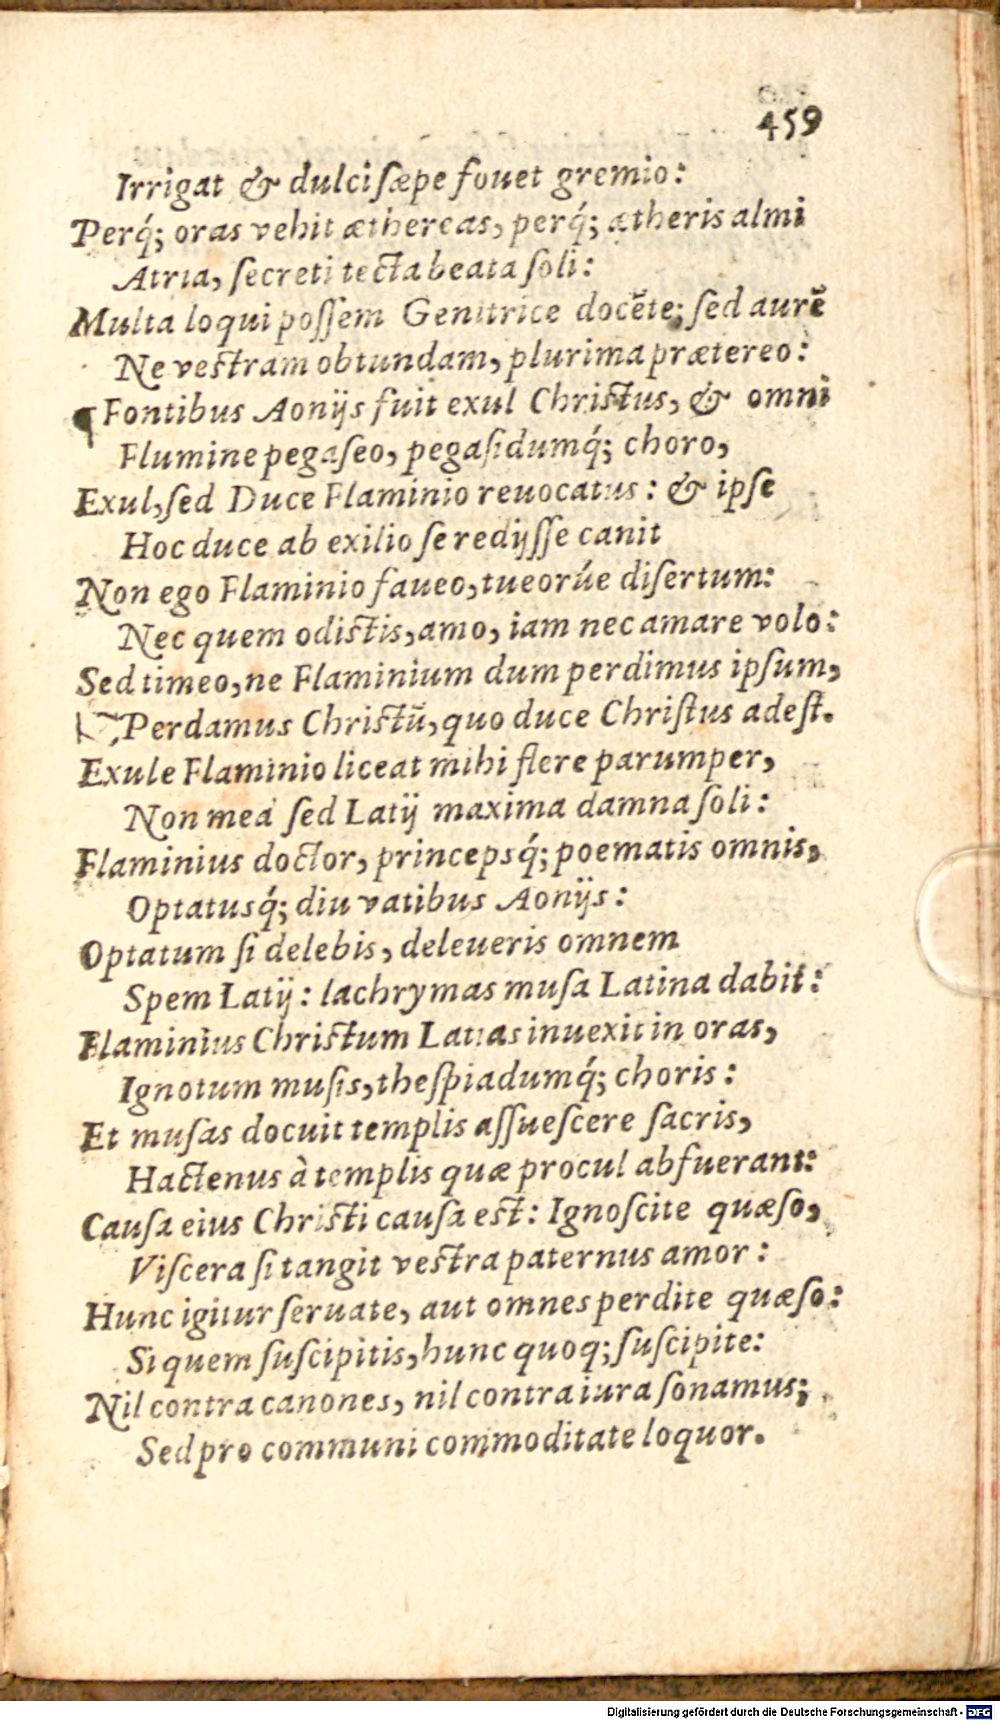 459
Irrigat & dulci sæpe fouet gremio:
Perq́; oras vehit æthereas, perq́; ætheris almi
Atria, secreti tecta beata soli:
Multa loqui possem Genitrice docẽte; sed aurẽ
Ne vestram obtundam, plurima prætereo:
¶ Fontibus Aonijs fuit exul Christus, & omni
Flumine pegaseo, pegasidumq́; choro,
Exul, sed Duce Flaminio reuocatus: & ipse
Hoc duce ab exilio se redijsse canit
Non ego Flaminio faueo, tueorúe disertum:
Nec quem odistis, amo, iam nec amare volo:
Sed timeo, ne Flaminium dum perdimus ipsum,
Perdamus Christũ, quo duce Christus adest.
Exule Flaminio liceat mihi flere parumper,
Non mea sed Latij maxima damna soli:
Flaminius doctor, princepsq́; poematis omnis,
Optatusq́; diu vatibus Aonijs:
Optatum si delebis, deleueris omnem
Spem Latij: lachrymas musa Latina dabit:
Flaminius Christum Latias inuexit in oras,
Ignotum musis, thespiadumq́; choris:
Et musas docuit templis assuescere sacris,
Hactenus à templis quæ procul abfuerant:
Causa eius Christi causa est: Ignoscite quæso,
Viscera si tangit vestra paternus amor:
Hunc igitur seruate, aut omnes perdite quæso:
Si quem suscipitis, hunc quoq; suscipite:
Nil contra canones, nil contra iura sonamus;
Sed pro communi commoditate loquor.
Digitalisierung gefördert durch die Deutsche Forschungsgemeinschaft - DFG